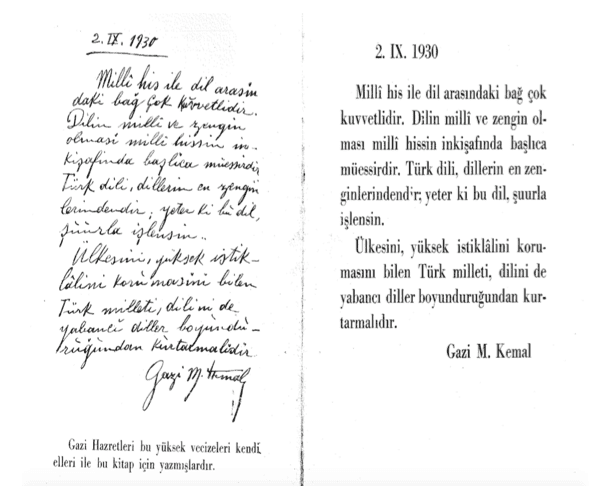 2. IX. 1930
Millî his ile dil arasın
daki bağ çok kuvvetlidir.
Dilin millî ve zengin
olması millî hissin in-
kişafında başlıca müessirdir
Türk dili, dillerin en zengin
lerindendir; yeter ki bu dil,
şuurla işlensin..
Ülkesini, yüksek istik-
lâlini korumasını bilen
Türk milleti, dilini de
yabancı diller boyundu-
ruğundan kurtarmalıdır
Gazi M. Kemal
Gazi Hazretleri bu yüksek vecizeleri kendi
elleri ile bu kitap için yazmışlardır.
2. IX. 1930
Millî his ile dil arasındaki bağ çok
kuvvetlidir. Dilin millî ve zengin ol-
ması millî hissin inkişafında başlıca
müessirdir. Türk dili, dillerin en zen-
ginlerindend'r; yeter ki bu dil, şuurla
işlensin.
Ülkesini, yüksek istiklâlini koru-
masını bilen Türk milleti, dilini de
yabancı diller boyunduruğundan kur-
tarmalıdır.
Gazi M. Kemal